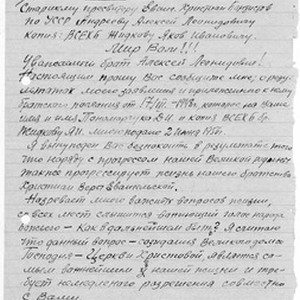 Старшему пресвитеру Еванг. Христиан Баптистов
по УССР Андрееву Алексей Леонидовичу
Копия: ВСЕХБ Жидкову Якову Ивановичу.
Мир Вам!!!
Уважаемый брат Алексей Леонидович!
Настоящим прошу Вас сообщить мне, о резуль-
татах моего заявления и приложенного к нему
братского послания от 1948г., которое на Ваше
имя и имя Пономарчука Д.И. и копия ВСЕХБ бр.
Жидкову Я.И. мною подано 2 июня
Я вынужден Вас беспокоить в результате того
что наряду с прогрессом нашей Великой родины
также прогрессирует жизнь нашего братства
Христиан Веры Евангельской.
Назревает много важных вопросов жизни,
со всех мест слышится вопиющий голос народа
Божьего — Как в дальнейшем быть? Я считаю
что данный вопрос — создания Великого дома
Господня — Церкви Христовой, является са-
мым важнейшим в нашей жизни и тре-
бует немедленного разрешения совместно
с Вами.